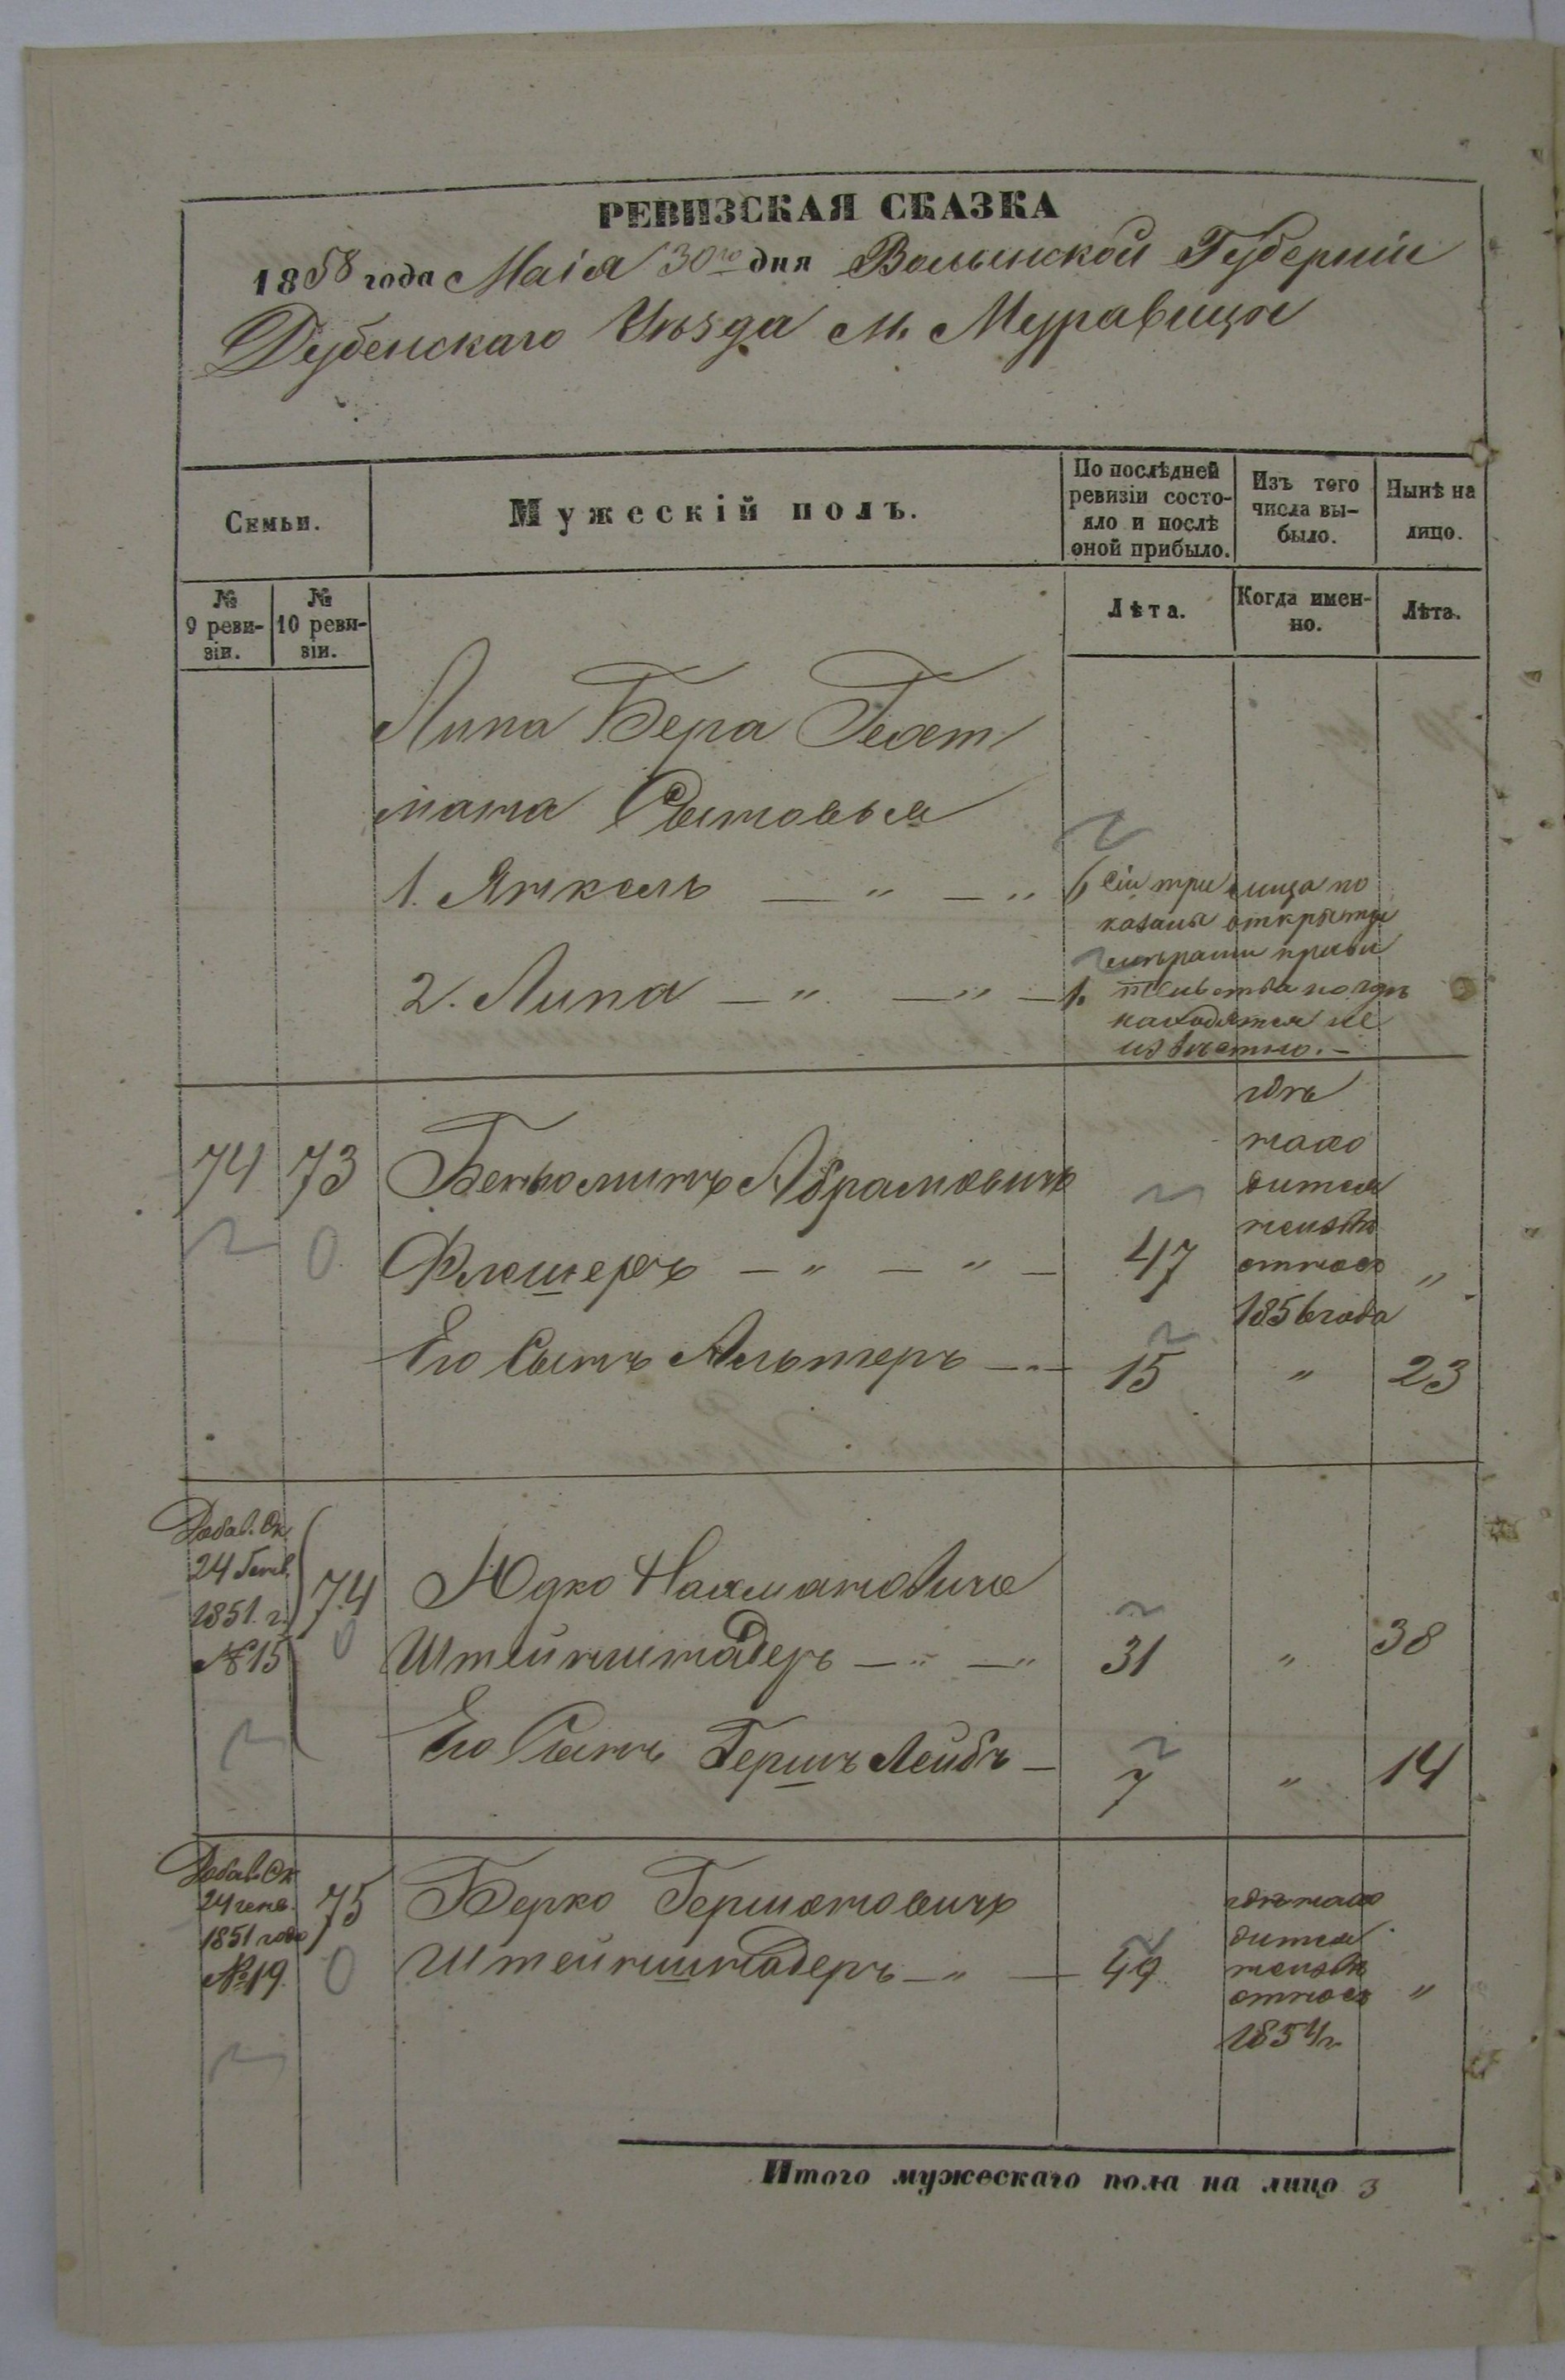 РЕВИЗСКАЯ СКАЗКА
1858 года Маія 30го дня Волынской Губерніи
Дубенскаго Уѣзда м. Муравицы
Семьи.
Мужескій полъ.
По послѣдней ревизіи состо-
яло и послѣ
оной прибыло.
Изъ того
числа вы-
было.
Нынѣ на
лицо.
№
9 реви-
зіи.
№
10 реви-
зіи.
Лѣта.
Когда имен-
но.
Лѣта.
Липа Бера
Сыновья
1. Янкель — " — " 6
2. Липа — " — " — 1.
сіи три лица по
казаны открытыи
мѣрами прави
тельства но гдѣ
находятся не
извѣстно. —
74 73 Беньоминъ Абрамовичъ
Флешеръ — " — " — 47 "
гдѣ
нахо
дится
неизвѣ
стно съ
1856 года
Его Сынъ Альтеръ — " — 15 " 23
Добав. Ск.
24 Генв.
1851. г.
№ 15
74 Юдко Нахмановичъ
Штейнштадеръ — " — " 31 " 38
Его Сынъ Гершъ Лейбъ — 7 " 14
Добав. Ск.
24 генв.
1851 года
№ 19.
75 Берко Гершоновичъ
Штейнштадеръ — " — 49 "
гдѣ нахо
дится
неизвѣ
стно съ
1854 г.
Итого мужескаго пола на лицо 3